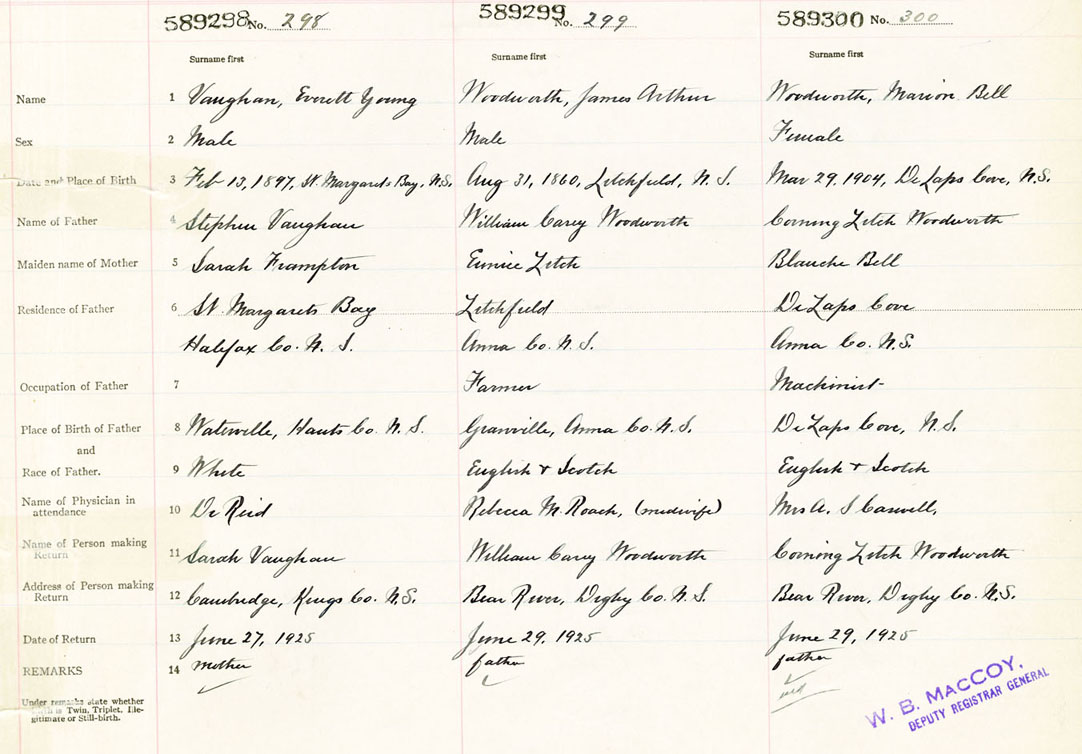 589298 No. 298 589299 No. 299 589300 No. 300
Surname first Surname first Surname first
Name 1 Vaughan, Everett Young Woodworth, James Arthur Woodworth, Marion Bell
Sex 2 Male Male Female
Date and Place of Birth 3 Feb 13, 1897, St. Margarets Bay, N.S. Aug 31, 1860, Litchfield, N.S. Mar 29, 1904, DeLaps Cove, N.S.
Name of Father 4 Stephen Vaughan William Carey Woodworth Corning Litch Woodworth
Maiden name of Mother 5 Sarah Frampton Eunice Litch Blanche Bell
Residence of Father 6 St. Margarets Bay Litchfield DeLaps Cove
Halifax Co. N.S. Anna Co. N.S. Anna Co. N.S.
Occupation of Father 7 Farmer Machinist
Place of Birth of Father 8 Waterville, Hants Co. N.S. Granville, Anna Co. N.S. DeLaps Cove, N.S.
and
Race of Father. 9 White English & Scotch English & Scotch
Name of Physician in
attendance 10 Dr Reid Rebecca M. Roach, (midwife) Mrs A. S Caswell,
Name of Person making
Return 11 Sarah Vaughan William Carey Woodworth Corning Litch Woodworth
Address of Person making
Return 12 Cambridge, Kings Co. N.S. Bear River, Digby Co. N.S. Bear River, Digby Co. N.S.
Date of Return 13 June 27, 1925 June 29, 1925 June 29, 1925
REMARKS 14 mother father father
Under remarks state whether
is Twin, Triplet, Ille-
gitimate or Still-birth.
W. B. MACCOY,
DEPUTY REGISTRAR GENERAL